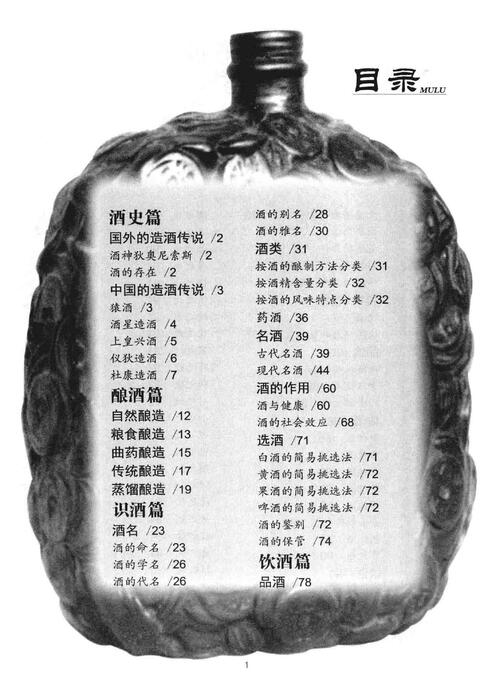 目录
MULU
酒史篇
国外的造酒传说 /2
酒神狄奥尼索斯 /2
酒的存在 /2
中国的造酒传说 /3
猿酒 /3
酒星造酒 /4
上皇兴酒 /5
仪狄造酒 /6
杜康造酒 /7
酿酒篇
自然酿造 /12
粮食酿造 /13
曲药酿造 /15
传统酿造 /17
蒸馏酿造 /19
识酒篇
酒名 /23
酒的命名 /23
酒的学名 /26
酒的代名 /26
酒的别名 /28
酒的雅名 /30
酒类 /31
按酒的酿制方法分类 /31
按酒精含量分类 /32
按酒的风味特点分类 /32
药酒 /36
名酒 /39
古代名酒 /39
现代名酒 /44
酒的作用 /60
酒与健康 /60
酒的社会效应 /68
选酒 /71
白酒的简易挑选法 /71
黄酒的简易挑选法 /72
果酒的简易挑选法 /72
啤酒的简易挑选法 /72
酒的鉴别 /72
酒的保管 /74
饮酒篇
品酒 /78
1